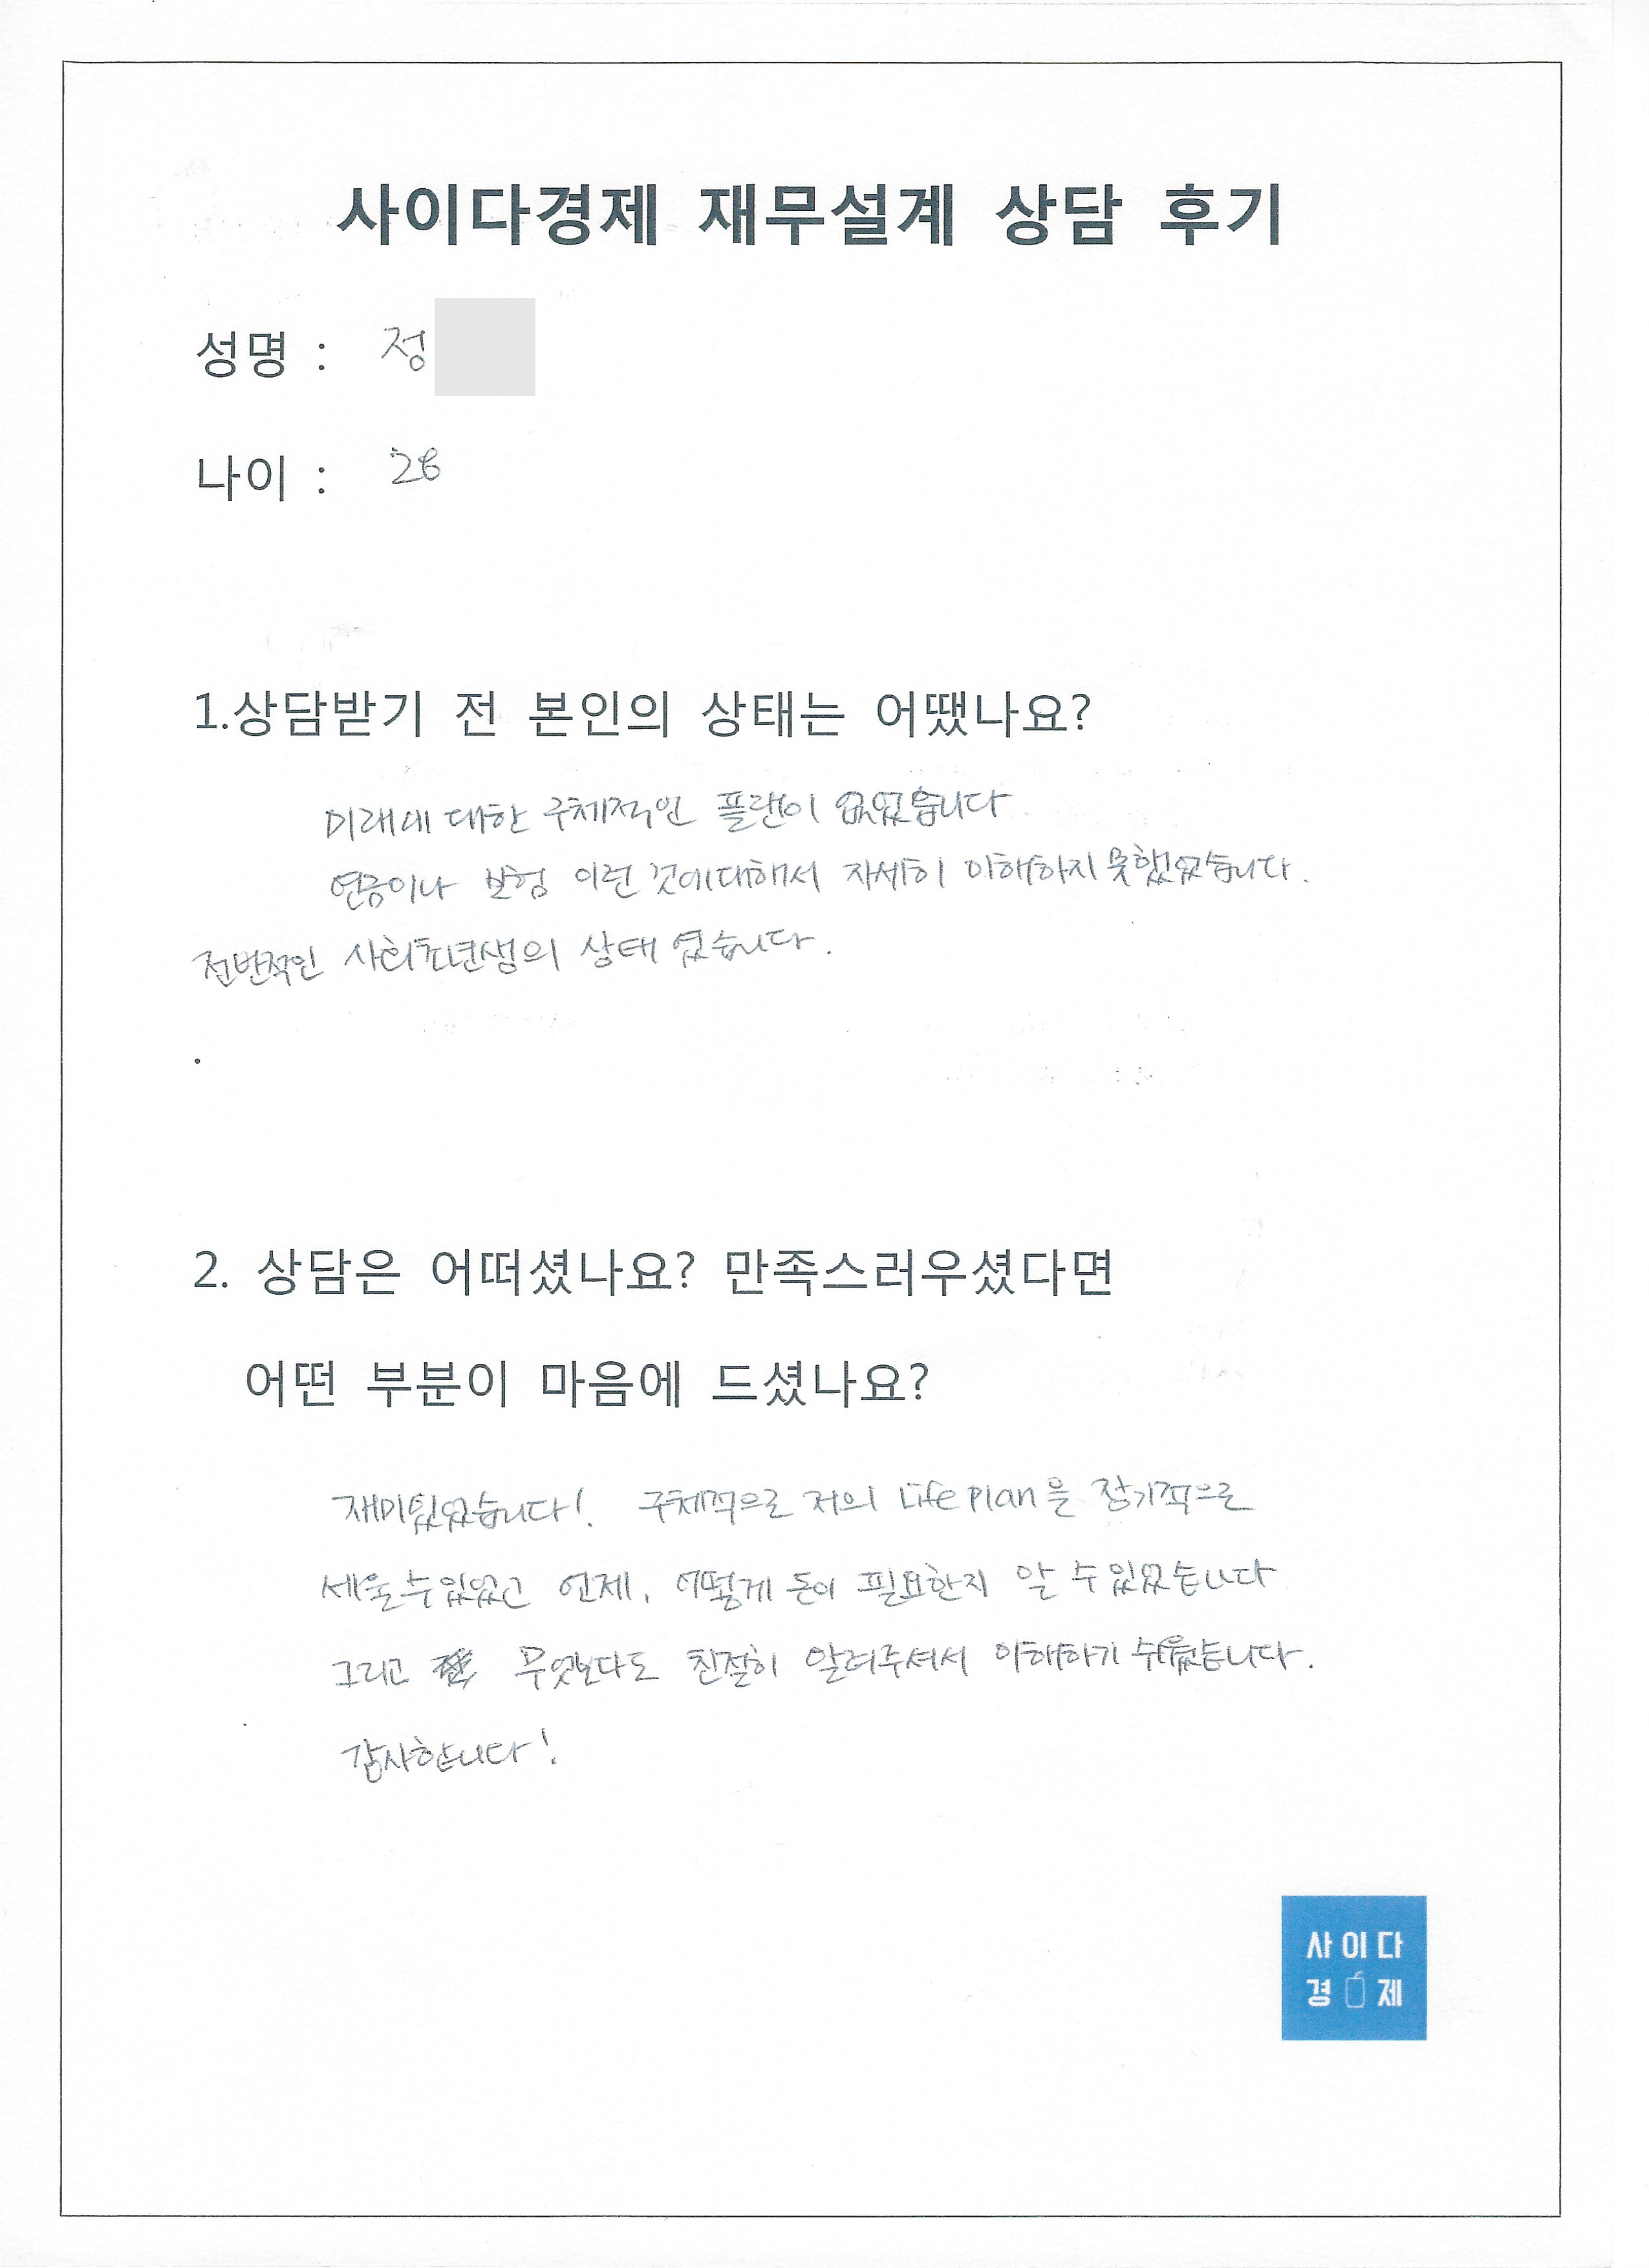 사이다경제 재무설계 상담 후기
성명 : 정
나이 : 26
1.상담받기 전 본인의 상태는 어땠나요?
미래에 대한 구체적인 플랜이 없었습니다
연금이나 보험 이런 것에대해서 자세히 이해하지 못했었습니다.
전반적인 사회초년생의 상태 였습니다.
.
2. 상담은 어떠셨나요? 만족스러우셨다면
어떤 부분이 마음에 드셨나요?
재미있었습니다! 구체적으로 저의 Life Plan을 장기적으로
세울수있었고 언제, 어떻게 돈이 필요한지 알 수 있었습니다
그리고 무엇보다도 친절히 알려주셔서 이해하기 쉬웠습니다.
감사합니다!
사이다
경제